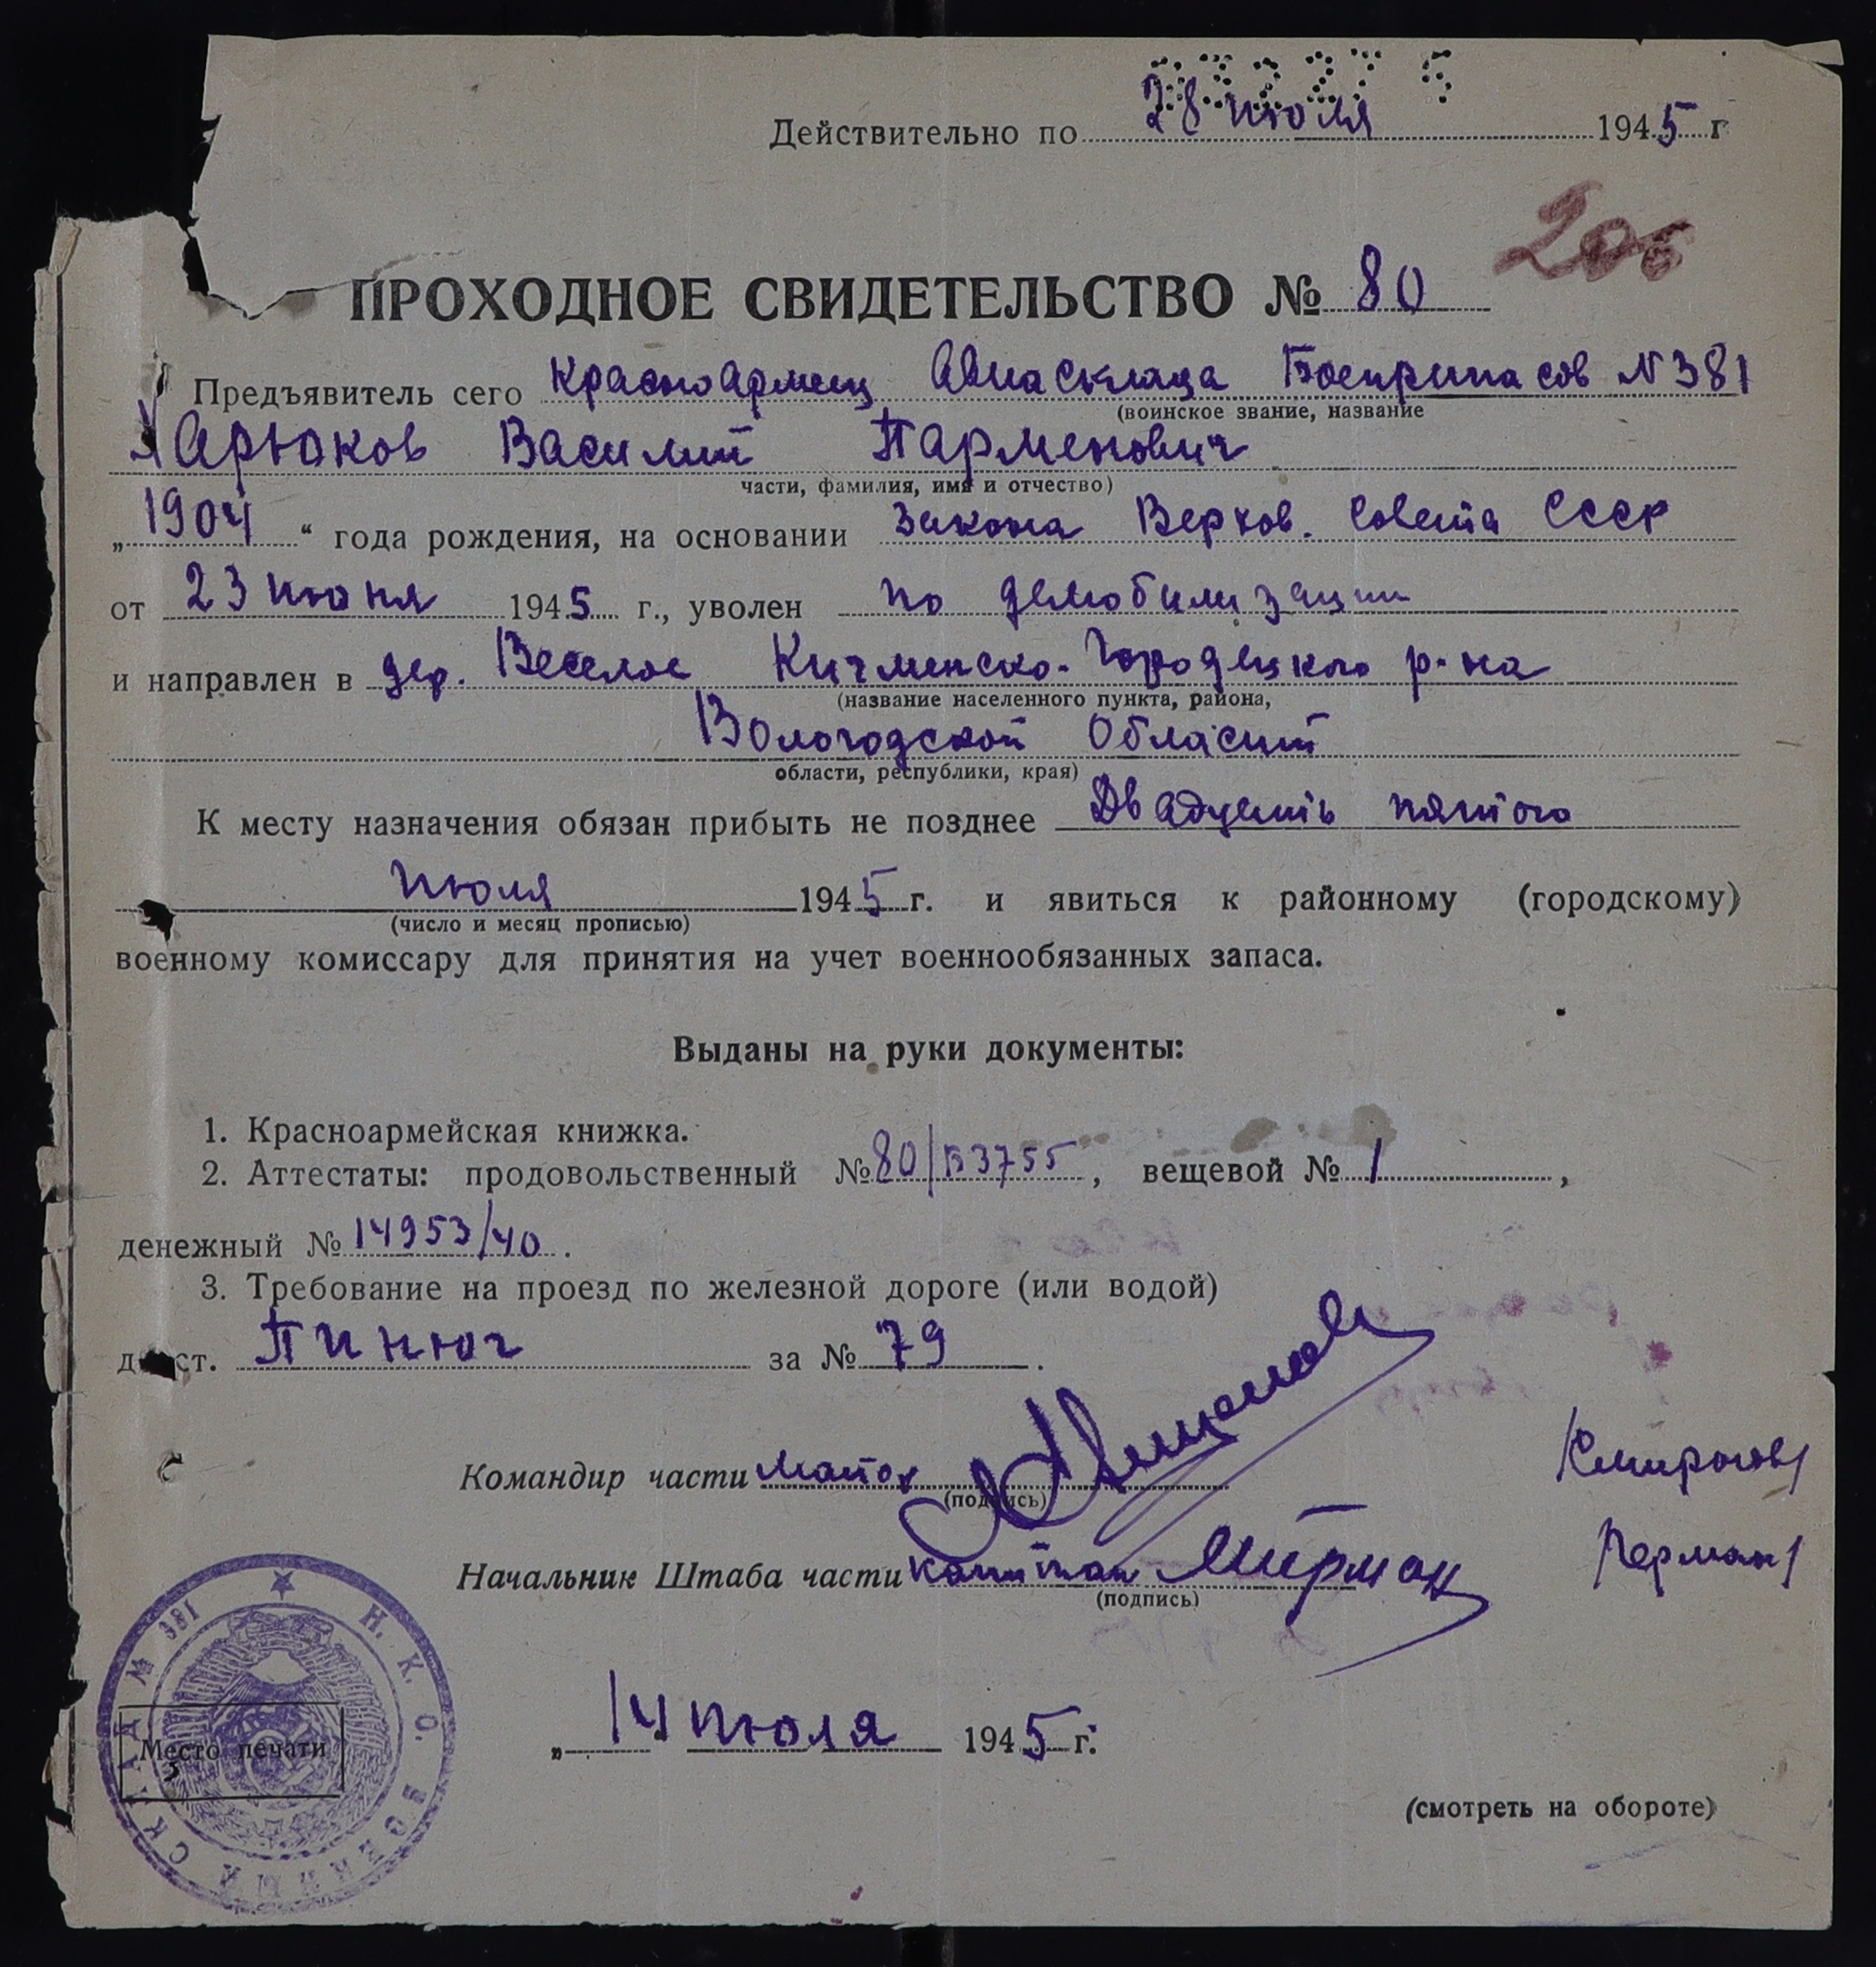 Действительно по 28 июля 1945 г
206
ПРОХОДНОЕ СВИДЕТЕЛЬСТВО № 80
Предъявитель сего Красноармеец Авиасклада Боеприпасов №381
(воинское звание, название
Харюков Василий Парменович
части, фамилия, имя и отчество)
„1904“ года рождения, на основании Закона Верхов. Совета СССР
от 23 июня 1945 г., уволен по демобилизации
и направлен в дер. Веселое Кичменско-Городецкого р-на
(название населенного пункта, района,
Вологодской Области
области, республики, края)
К месту назначения обязан прибыть не позднее Двадцать пятого
июля 1945 г. и явиться к районному (городскому)
(число и месяц прописью)
военному комиссару для принятия на учет военнообязанных запаса.
Выданы на руки документы:
1. Красноармейская книжка.
2. Аттестаты: продовольственный № 80/В3755, вещевой № 1,
денежный № 14953/40.
3. Требование на проезд по железной дороге (или водой)
до ст. Пинюг за № 79.
Командир части майор
(подпись)
Начальник Штаба части капитан
(подпись)
Н. К. О. ВОЕННЫЙ СКЛАД № 381
Место печати
„14“ июля 1945 г.
(смотреть на обороте)